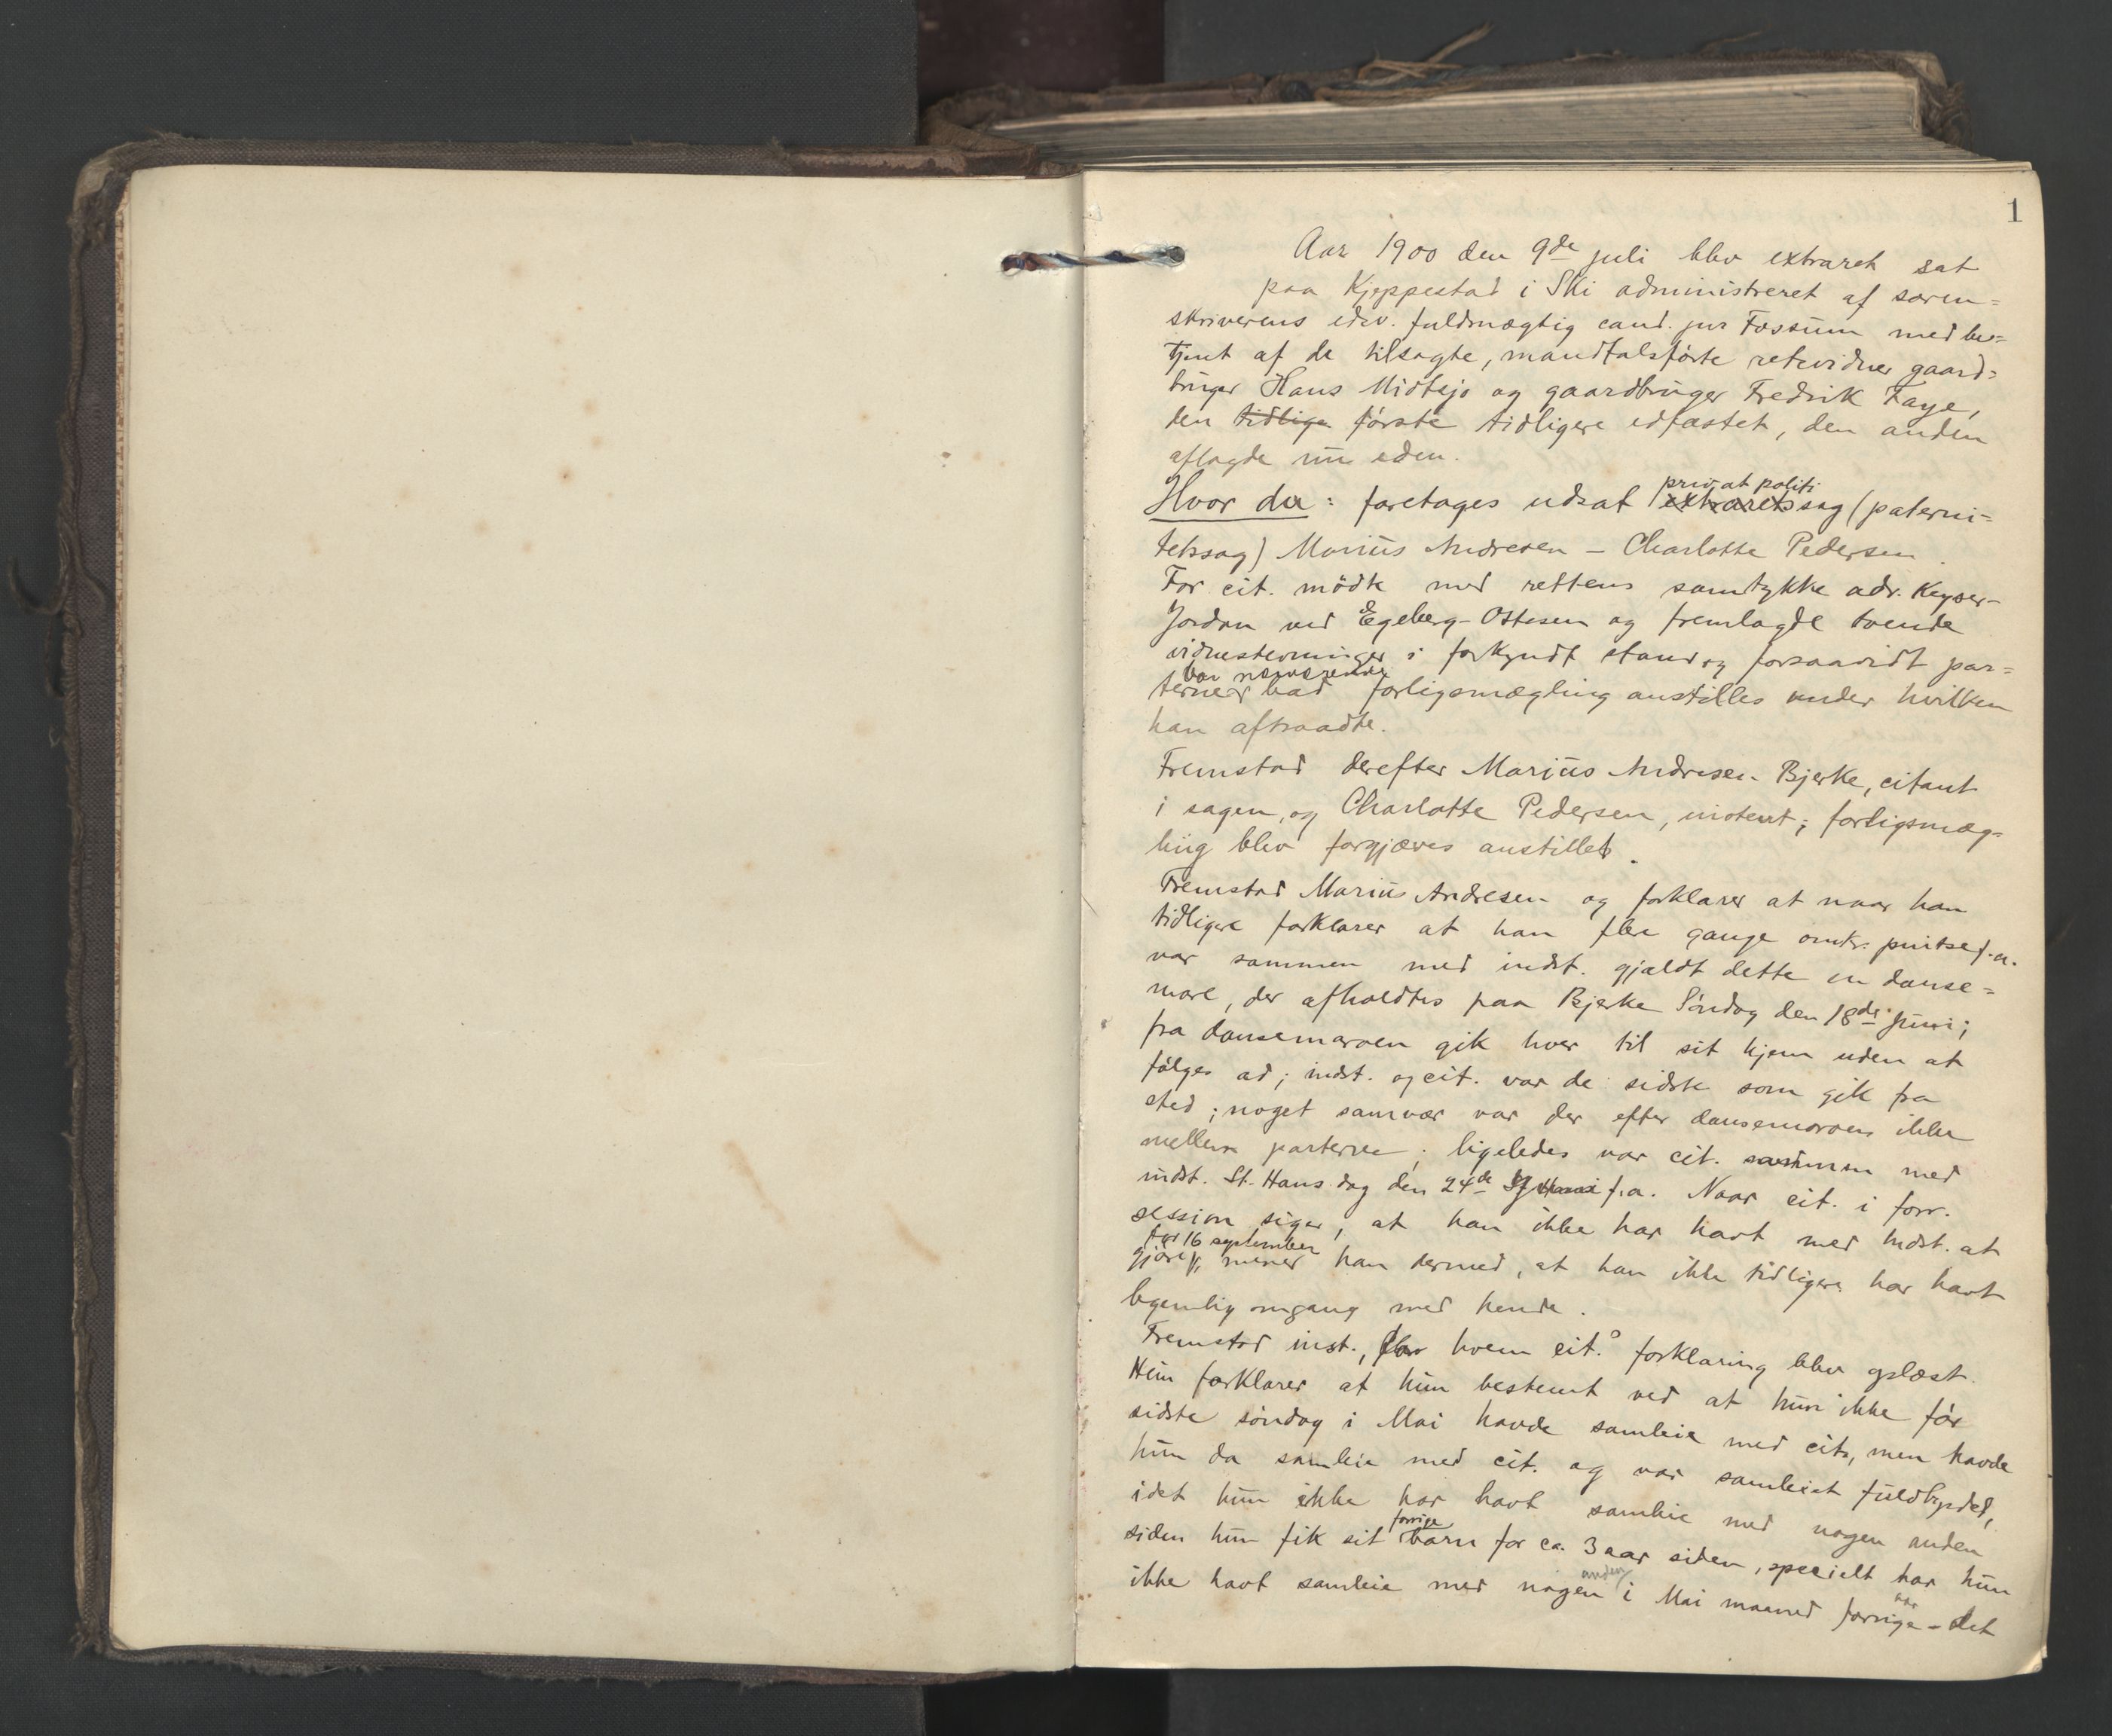 1
Aar 1900 den 9de juli blev extraret sat
paa Kjeppestad i Ski administreret af soren=
skriverens edsv. fuldmægtig cand. jur Fossum med be=
tjent af de tilsagte, mandtalsførte retsvidner gaard=
bruger Hans Midtsjø og gaardbruger Fredrik Faye,
den tidlige første tidligere edfæstet, den anden
aflagde nu eden.
privat politi
Hvor da: foretages udsat extraretssag (paterni=
tetssag) Marius Andresen – Charlotte Pedersen
For cit. mødte med rettens samtykke adv. Keyser-
Jordan ved Egeberg-Ottosen og fremlagde tvende
vidnestevninger i forkyndt stand og forsaavidt par=
var nærværende
terne bad forligsmægling anstilles under hvilken
han aftraadte.
Fremstod derefter Marius Andresen Bjerke, citant
i sagen, og Charlotte Pedersen, indstevnt; forligsmæg=
ling blev forgjæves anstillet.
Fremstod Marius Andresen og forklarer at naar han
tidligere forklarer at han flere gange omtr. pintse f.a.
var sammen med indst. gjaldt dette en danse=
moro, der afholdtes paa Bjerke Søndag den 18de Juni;
fra dansemoroen gik hver til sit hjem uden at
følges ad; indst. og cit. var de sidste som gik fra
sted; noget samvær var der efter dansemoroen ikke
mellem parterne; ligeledes var cit. sammen med
indst. St. Hans dag den 24de f.a. Naar cit. i forr.
session siger, at han ikke har havt med Indst. at
før 16 september
gjøre, mener han dermed, at han ikke tidligere har havt
legemlig omgang med hende.
Fremstod inst., for hvem cit.s forklaring blev oplæst.
Hun forklarer at hun bestemt ved at hun ikke før
sidste søndag i Mai havde samleie med cit., men havde
hun da samleie med cit. og var samleiet fuldbyrdet,
idet hun ikke har havt samleie med nogen anden
forrige
siden hun fik sit barn for ca. 3 aar siden, specielt har hun
anden aar
ikke havt samleie med nogen i Mai maaned forrige – det